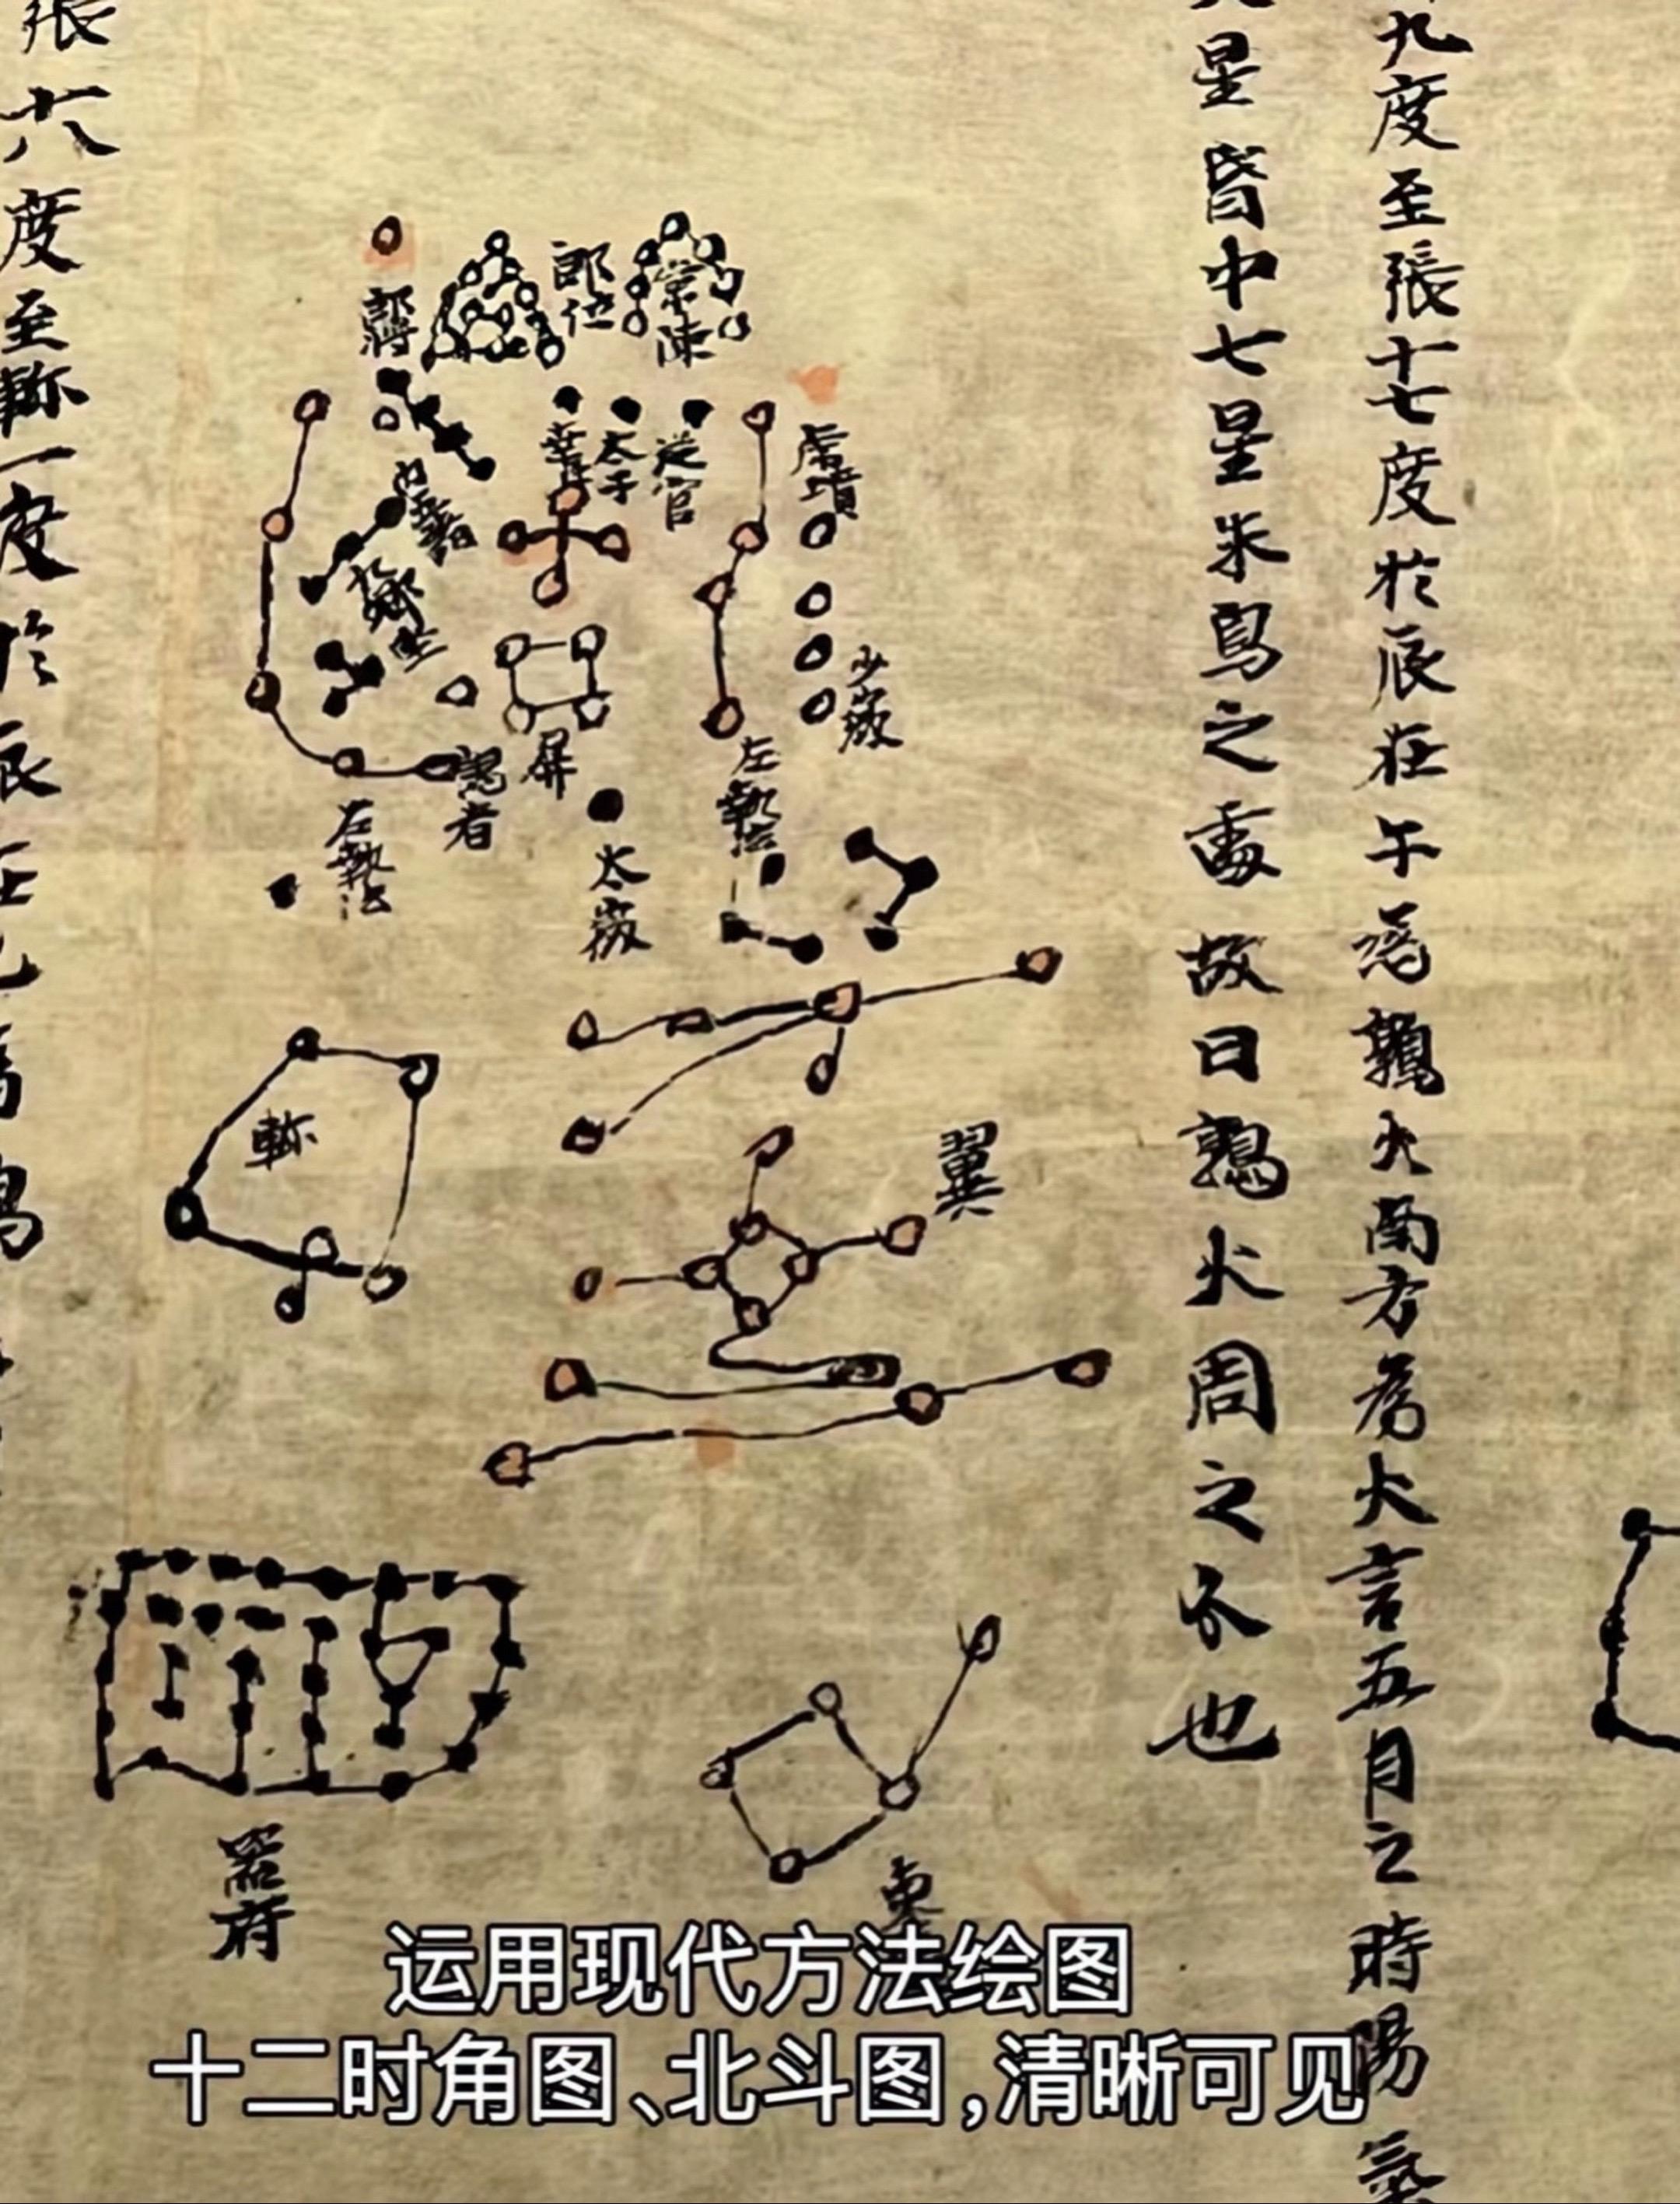 九度至張十七度於辰在午為鶉火南方為火言五月之時陽氣
星皆中七星朱鳥之處故曰鶉火周之分也
常陳
郎位
郎將
幸臣
太子
從官
虎賁
少微
屏
謁者
左執法
左執法
太微
翼
軫
器府
張六度至軫一度於辰在
运用现代方法绘图
十二时角图、北斗图，清晰可见